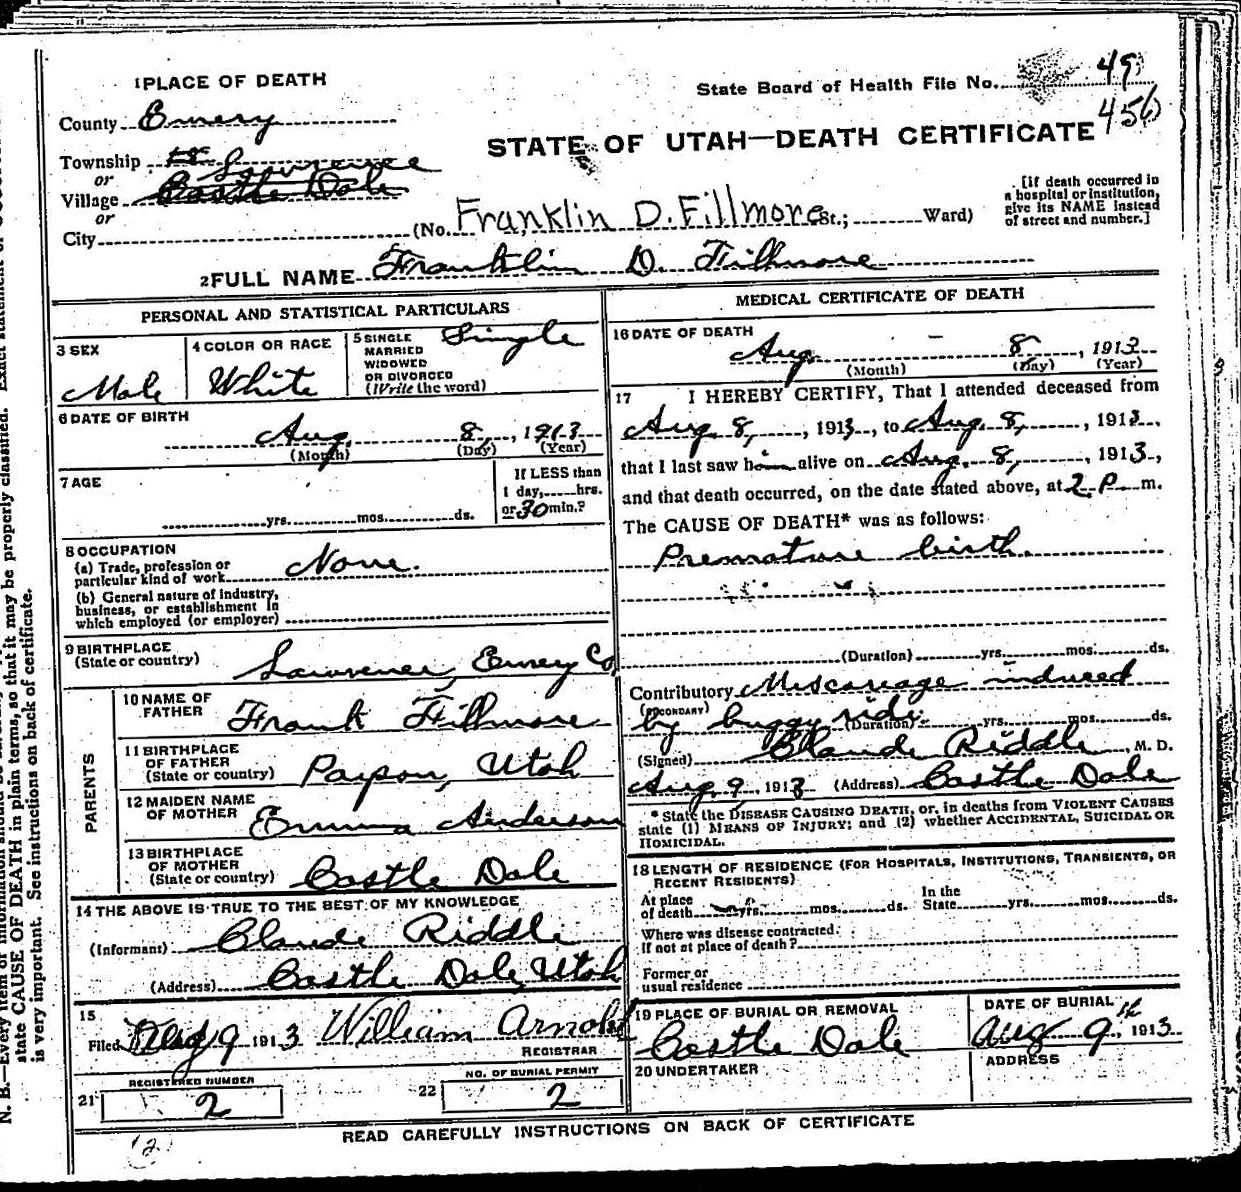 1 PLACE OF DEATH
State Board of Health File No. 49
456
County Emery
STATE OF UTAH—DEATH CERTIFICATE
Township Lawrence
or
Village Castle Dale
or
City (No. Franklin D. Fillmore St.; Ward)
[If death occurred in
a hospital or institution,
give its NAME instead
of street and number.]
2 FULL NAME Franklin D. Fillmore
PERSONAL AND STATISTICAL PARTICULARS
3 SEX
Male
4 COLOR OR RACE
White
5 SINGLE
MARRIED
WIDOWED
OR DIVORCED
(Write the word)
Single
6 DATE OF BIRTH
Aug. 8, 1913
(Month) (Day) (Year)
7 AGE
yrs. mos. ds.
If LESS than
1 day, hrs.
or 30 min.?
8 OCCUPATION
(a) Trade, profession or
particular kind of work None.
(b) General nature of industry,
business, or establishment in
which employed (or employer)
9 BIRTHPLACE
(State or country) Lawrence, Emery Co.
PARENTS
10 NAME OF
FATHER Frank Fillmore
11 BIRTHPLACE
OF FATHER
(State or country) Payson, Utah
12 MAIDEN NAME
OF MOTHER Emma Anderson
13 BIRTHPLACE
OF MOTHER
(State or country) Castle Dale
14 THE ABOVE IS TRUE TO THE BEST OF MY KNOWLEDGE
(Informant) Claude Riddle
(Address) Castle Dale, Utah
15
Filed Aug 9 1913 William Arnold
REGISTRAR
REGISTERED NUMBER
21 2
NO. OF BURIAL PERMIT
22 2
MEDICAL CERTIFICATE OF DEATH
16 DATE OF DEATH
Aug. 8, 1913
(Month) (Day) (Year)
17 I HEREBY CERTIFY, That I attended deceased from
Aug. 8, 1913, to Aug. 8, 1913,
that I last saw him alive on Aug. 8, 1913,
and that death occurred, on the date stated above, at 2 P. m.
The CAUSE OF DEATH* was as follows:
Premature birth.
(Duration) yrs. mos. ds.
Contributory Miscariage induced
(SECONDARY)
by buggy ride (Duration) yrs. mos. ds.
(Signed) Claude Riddle, M. D.
Aug. 9, 1913 (Address) Castle Dale
* State the DISEASE CAUSING DEATH, or, in deaths from VIOLENT CAUSES
state (1) MEANS OF INJURY; and (2) whether ACCIDENTAL, SUICIDAL OR
HOMICIDAL.
18 LENGTH OF RESIDENCE (FOR HOSPITALS, INSTITUTIONS, TRANSIENTS, OR
RECENT RESIDENTS)
At place
of death yrs. mos. ds.
In the
State yrs. mos. ds.
Where was disease contracted
If not at place of death?
Former or
usual residence
19 PLACE OF BURIAL OR REMOVAL
Castle Dale
DATE OF BURIAL
Aug 9th 1913
20 UNDERTAKER
ADDRESS
READ CAREFULLY INSTRUCTIONS ON BACK OF CERTIFICATE
(2)
N. B.—Every item of information should be
state CAUSE OF DEATH in plain terms, so that it may be properly classified. Exact statement of
is very important. See instructions on back of certificate.